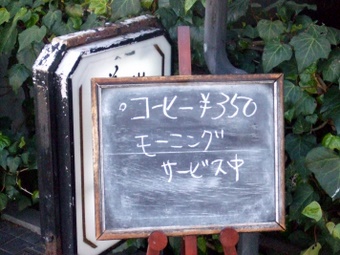 。コーヒー ¥350
モーニング
サービス中